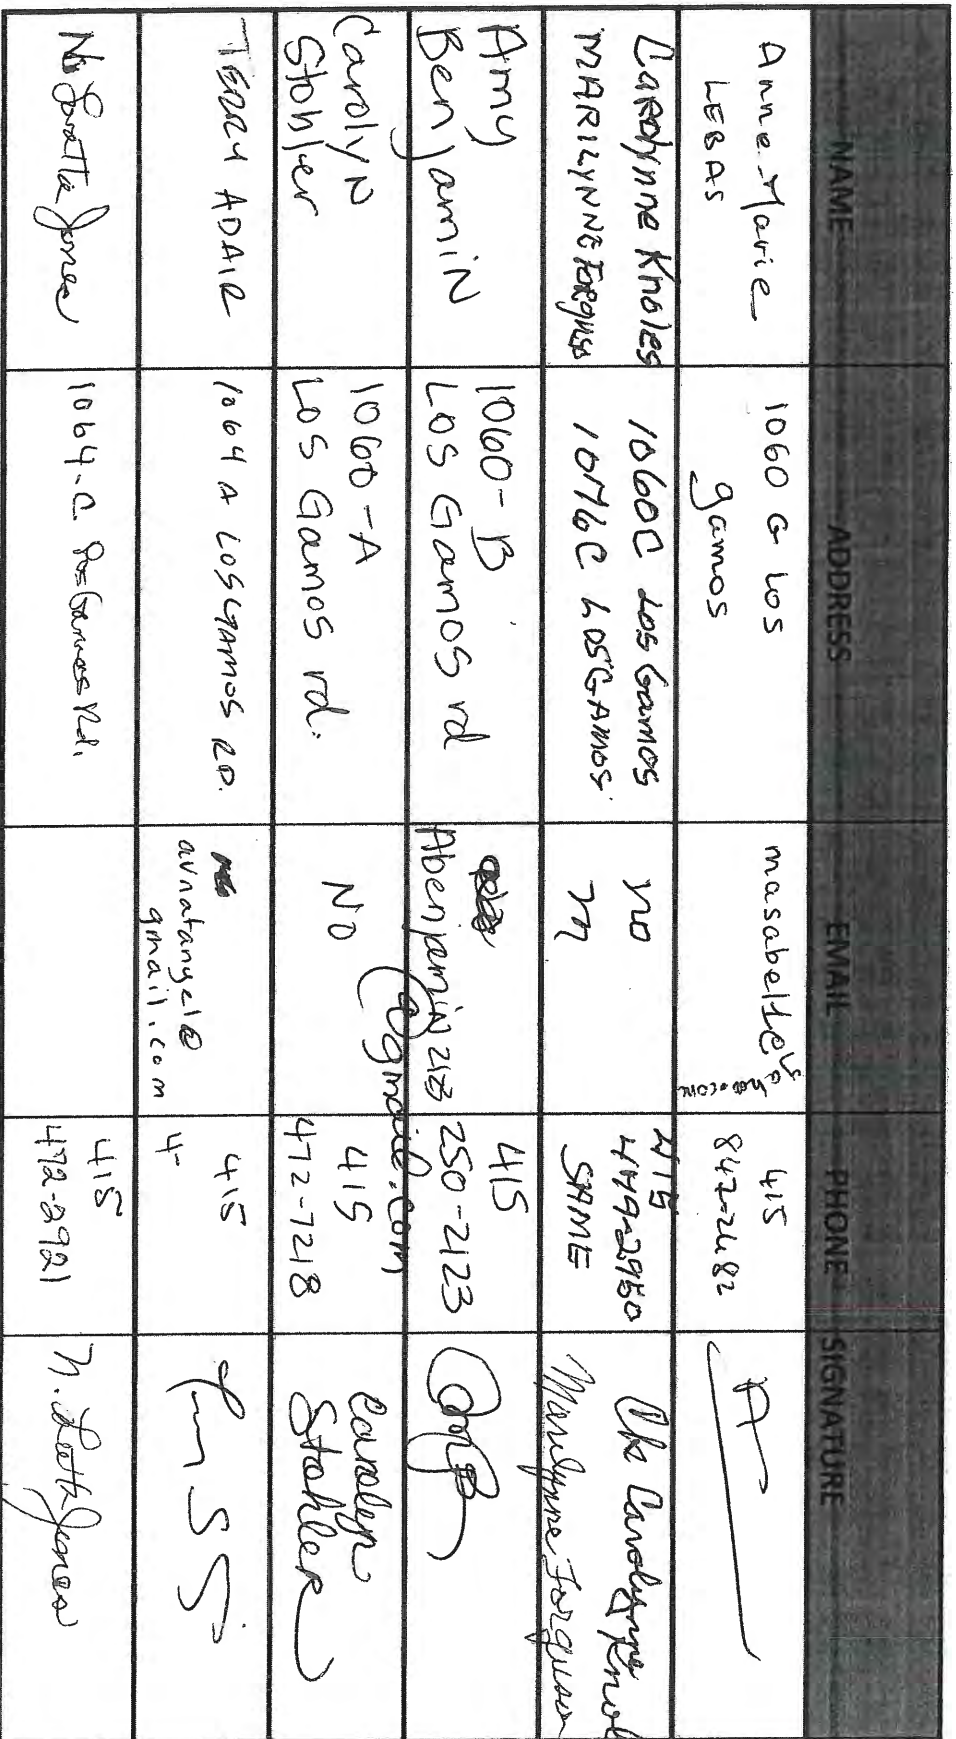 NAME ADDRESS EMAIL PHONE SIGNATURE
Anne-Marie
LEBAS
1060 G Los
gamos
masabelle@
yahoo.com
415
847-2482
Carolynne Knoles
1060C Los Gamos
no
415
449-2950
Carolynne
MARILYNNE
1076C LOSGAMOS
SAME
Marilynne
Amy
Benjamin
1060-B
Los Gamos rd
Abenjamin213
@gmail.com
415
250-2123
Carolyn
Stohler
1060-A
Los Gamos rd.
NO
415
472-7218
Carolyn
Stohler
TERRY ADAIR
1064 A LOS GAMOS RD.
avnatangel@
gmail.com
415
4-
N. Loretta Jones
1064-C Los Gamos Rd.
415
472-2921
N. Loretta Jones